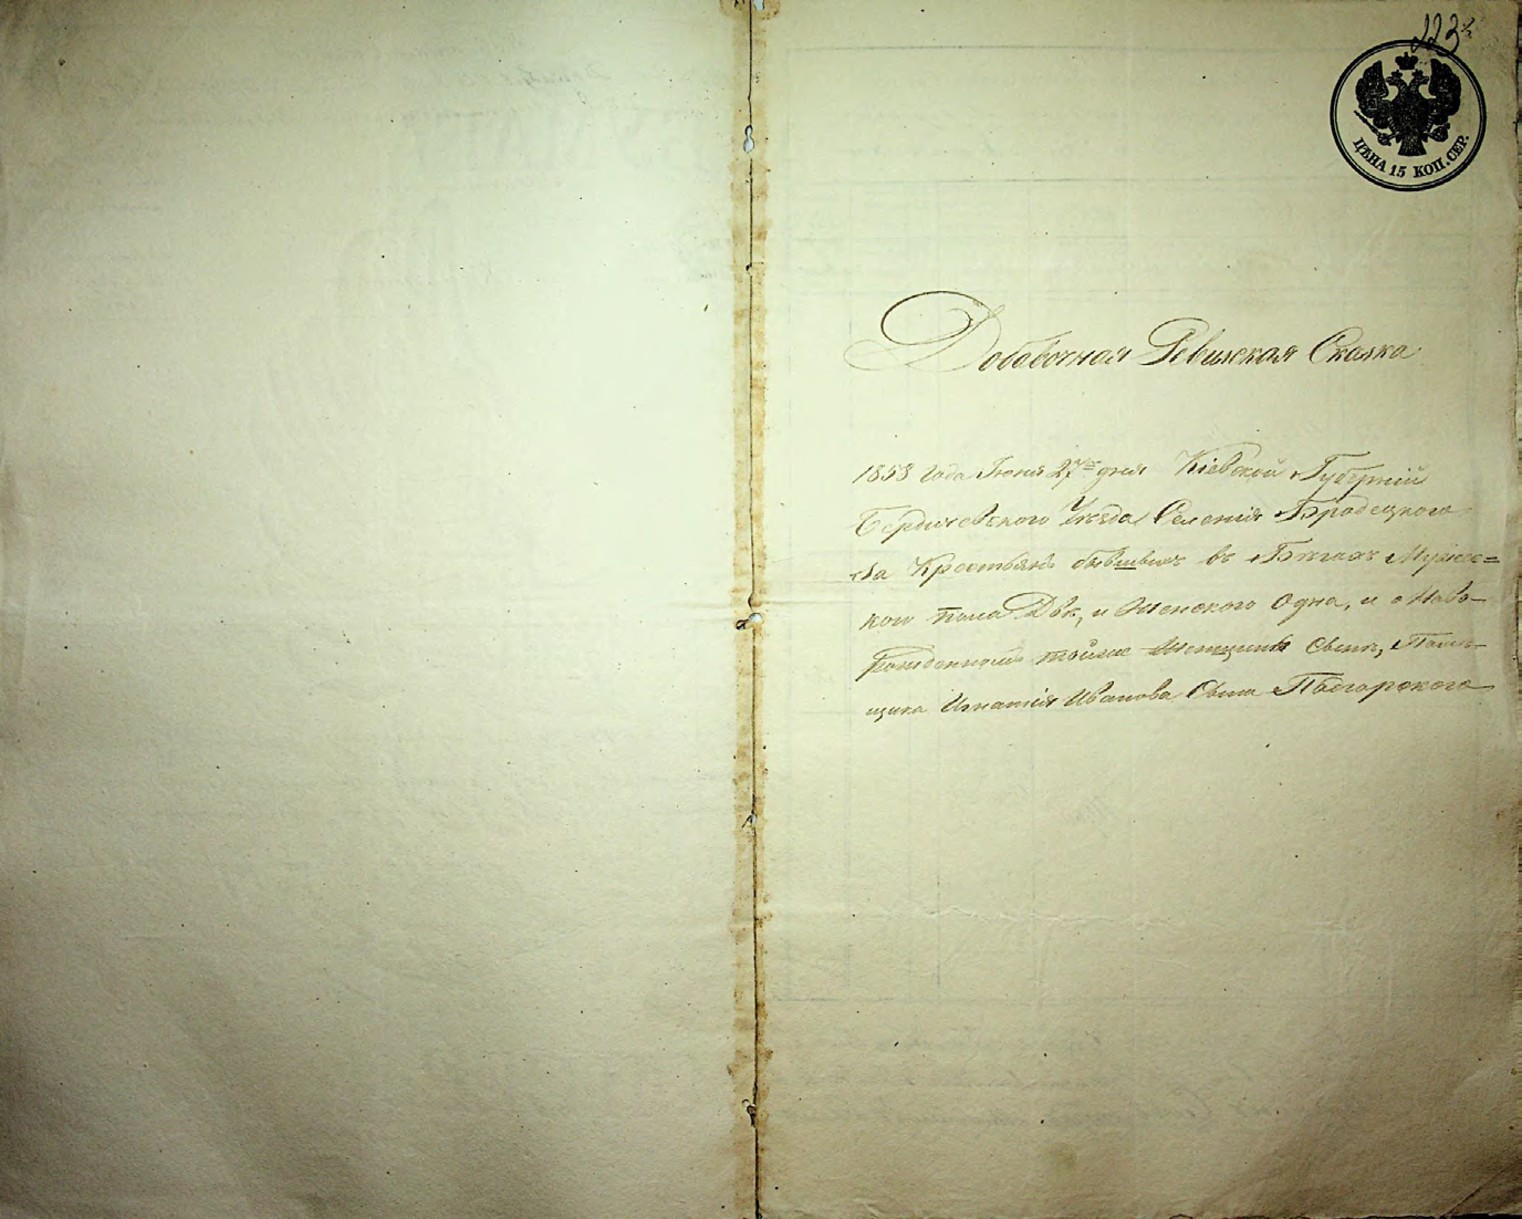 223
ЦѢНА 15 КОП. СЕР.
Добавочная Ревизская Сказка
1858 года Іюня 27го дня Кіевской Губерніи
Бердичевского Уѣзда Селенія Бродецкого
на Крестьянъ бывшыхъ въ Бѣгахъ Мужес=
кого пола Двѣ, и Женского Одна, и о Ново-
рожденномъ тойже Женщины Сынѣ, Помѣ-
щика Игнатія Иванова Сына